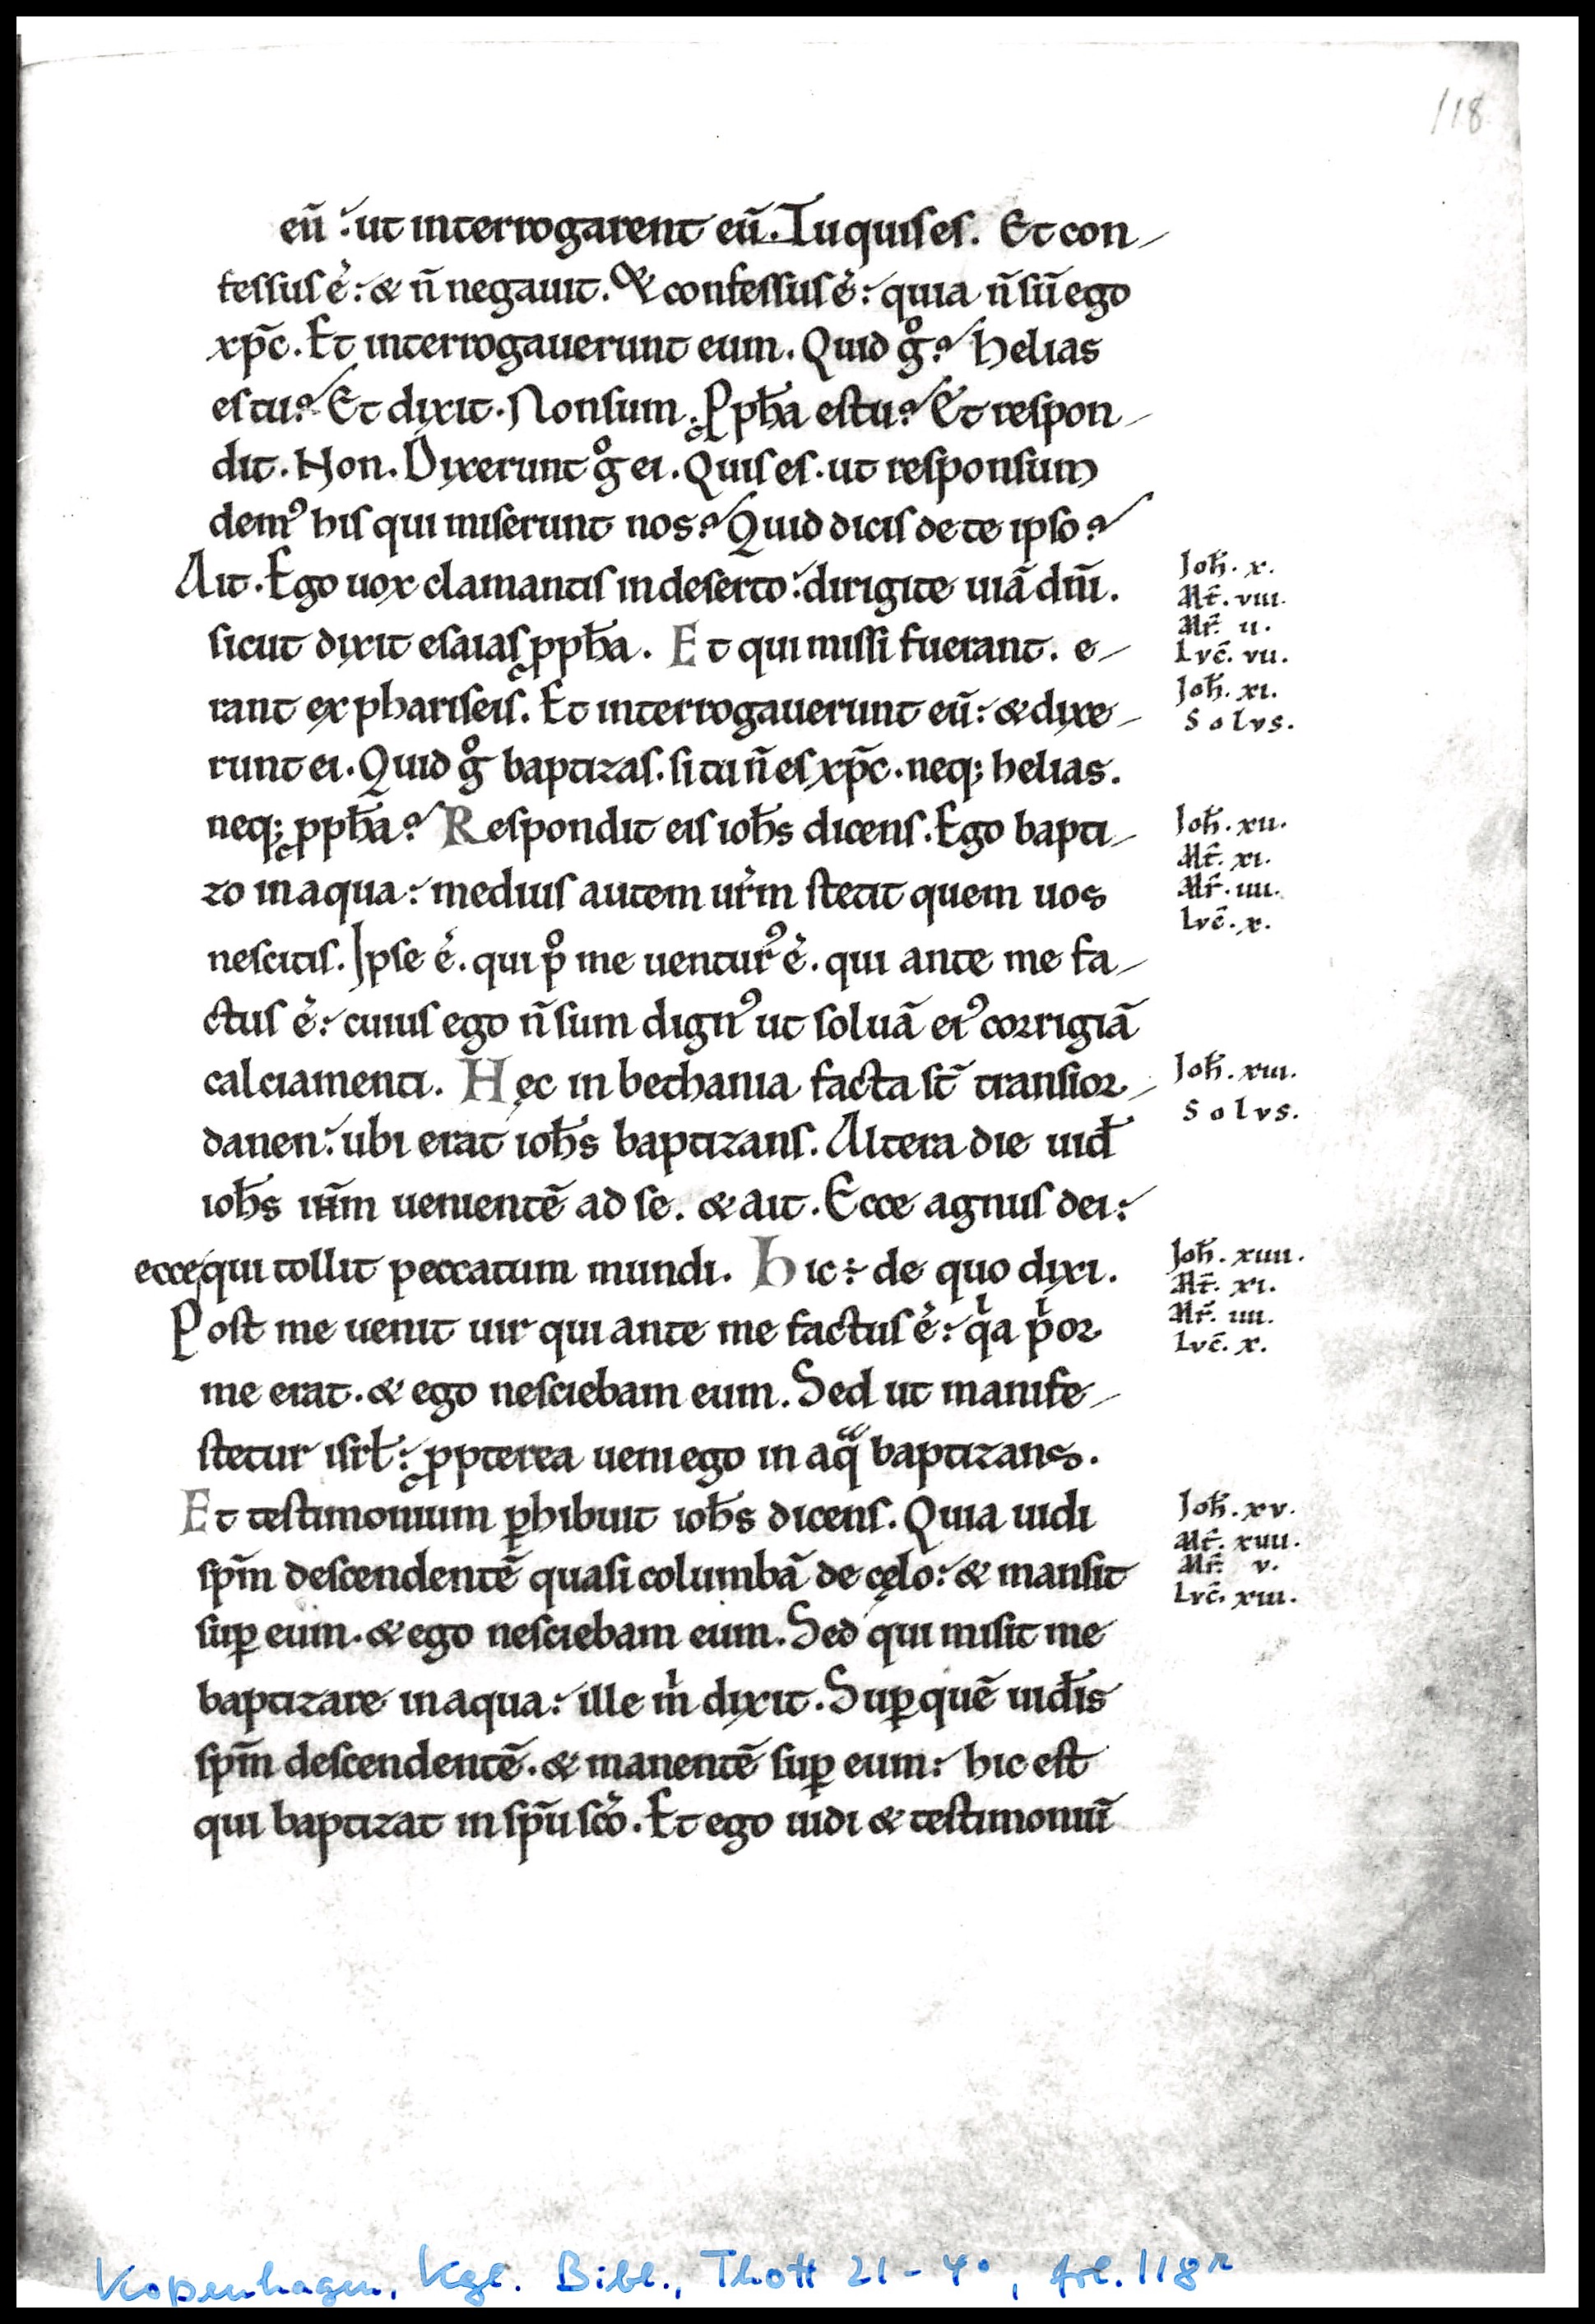 118
eū ut interrogarent eū. Tu quis es. Et con-
fessus ē: & n̄ negauit. & confessus ē: quia n̄ sū ego
xp̄c. Et interrogauerunt eum. Quid gͦ? helias
es tu? Et dixit. Non sum. Ꝓph̄a es tu? Et respon-
dit. Non. Dixerunt gͦ ei. Quis es. ut responsum
demꝰ his qui miserunt nos? Quid dicis de te ipso?
Ait. Ego uox clamantis in deserto: dirigite uiā dn̄i.
Joh̄. x.
Mt̄. viii.
Mr̄. ii.
Lvc̄. vii.
sicut dixit esaias ꝓph̄a. Et qui missi fuerant. e-
rant ex phariseis. Et interrogauerunt eū: & dixe-
Joh̄. xi.
Solvs.
runt ei. Quid gͦ baptizas. si tu n̄ es xp̄c. neq; helias.
neq; ꝓph̄a? Respondit eis ioh̄s dicens. Ego bapti-
Joh̄. xii.
Mt̄. xi.
Mr̄. iiii.
Lvc̄. x.
zo in aqua: medius autem ur̄m stetit quem uos
nescitis. Ipse ē. qui pͦ me uenturꝰ ē. qui ante me fa-
ctus ē: cuius ego n̄ sum dignꝰ ut soluā eiꝰ corrigiā
calciamenti. Hęc in bethania facta st̄ trans ior-
Joh̄. xiii.
Solvs.
danen: ubi erat ioh̄s baptizans. Altera die uid̄
ioh̄s ih̄m uenientē ad se. & ait. Ecce agnus dei:
ecce qui tollit peccatum mundi. Hic: de quo dixi.
Joh̄. xiiii.
Mt̄. xi.
Mr̄. iiii.
Lvc̄. x.
Post me uenit uir qui ante me factus ē: qͥa pͥor
me erat. & ego nesciebam eum. Sed ut manife-
stetur isrł: ꝓpterea ueni ego in aqᵃ baptizans.
Et testimonium ꝑhibuit ioh̄s dicens. Quia uidi
Joh̄. xv.
Mt̄. xiiii.
Mr̄. v.
Lvc̄. xiii.
sp̄m descendentē quasi columbā de cęlo: & mansit
suꝑ eum. & ego nesciebam eum. Sed qui misit me
baptizare in aqua: ille mͥ dixit. Suꝑ quē uid̄is
sp̄m descendentē. & manentē suꝑ eum: hic est
qui baptizat in sp̄u sc̄o. Et ego uidi & testimoniū
Kopenhagen, Kgl. Bibl., Thott 21-4°, fol. 118r